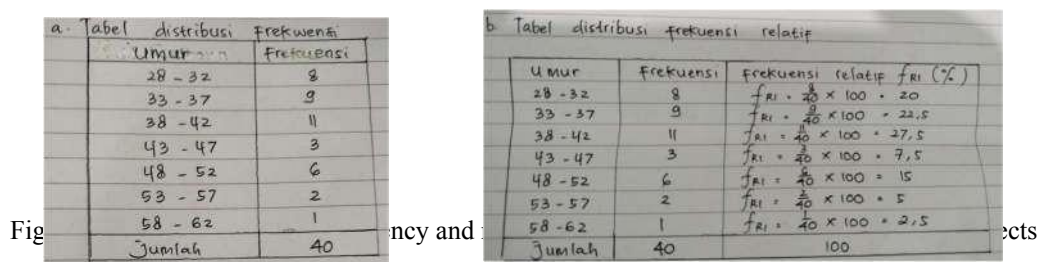 a. Tabel distribusi Frekwensi
Umur Frekuensi
28 - 32 8
33 - 37 9
38 - 42 11
43 - 47 3
48 - 52 6
53 - 57 2
58 - 62 1
Jumlah 40
b. Tabel distribusi frekuensi relatif
Umur Frekuensi Frekuensi relatif fRI (%)
28 - 32 8 fRI = 8/40 × 100 = 20
33 - 37 9 fRI = 9/40 × 100 = 22,5
38 - 42 11 fRI = 11/40 × 100 = 27,5
43 - 47 3 fRI = 3/40 × 100 = 7,5
48 - 52 6 fRI = 6/40 × 100 = 15
53 - 57 2 fRI = 2/40 × 100 = 5
58 - 62 1 fRI = 1/40 × 100 = 2,5
Jumlah 40 100
Fig ncy and ects